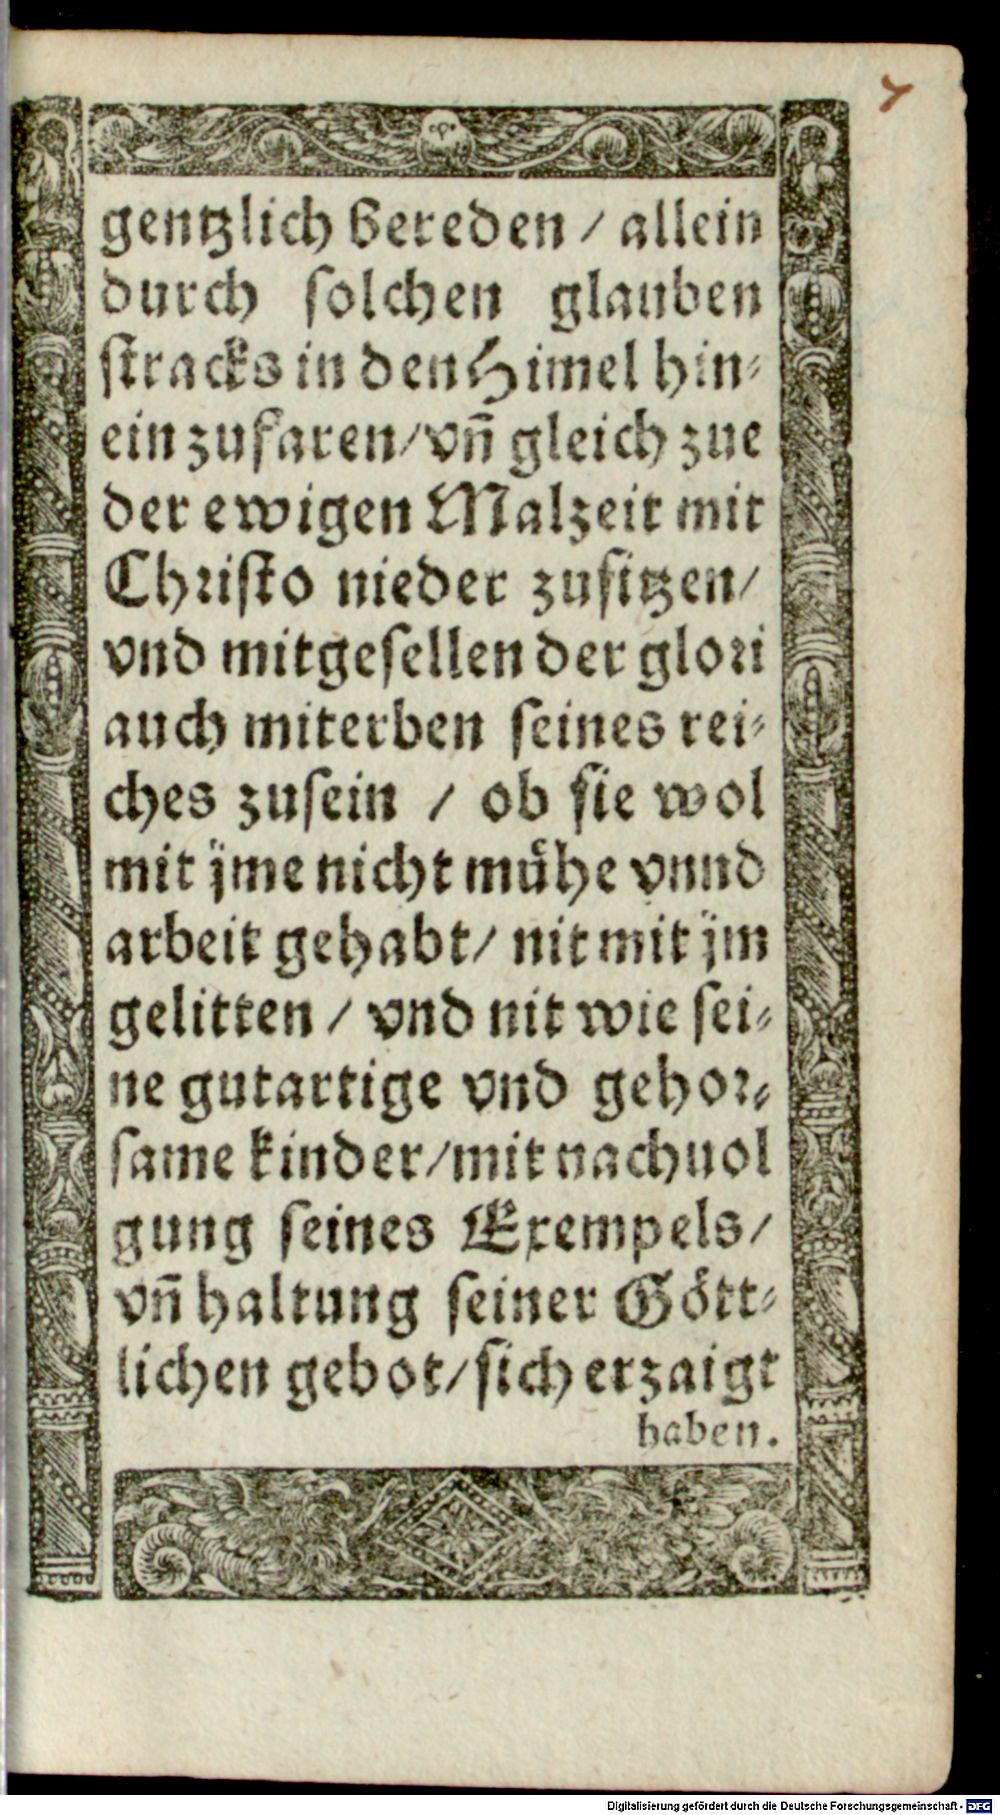 7
gentzlich bereden / allein
durch solchen glauben
stracks in den Himel hin⸗
ein zufaren/vñ gleich zue
der ewigen Malzeit mit
Christo nieder zusitzen/
vnd mitgesellen der glori
auch miterben seines rei⸗
ches zusein / ob sie wol
mit jme nicht mühe vnnd
arbeit gehabt/ nit mit jm
gelitten / vnd nit wie sei⸗
ne gutartige vnd gehor⸗
same kinder/mit nachuol
gung seines Exempels/
vñ haltung seiner Gött⸗
lichen gebot/sich erzaigt
haben.
Digitalisierung gefördert durch die Deutsche Forschungsgemeinschaft - DFG